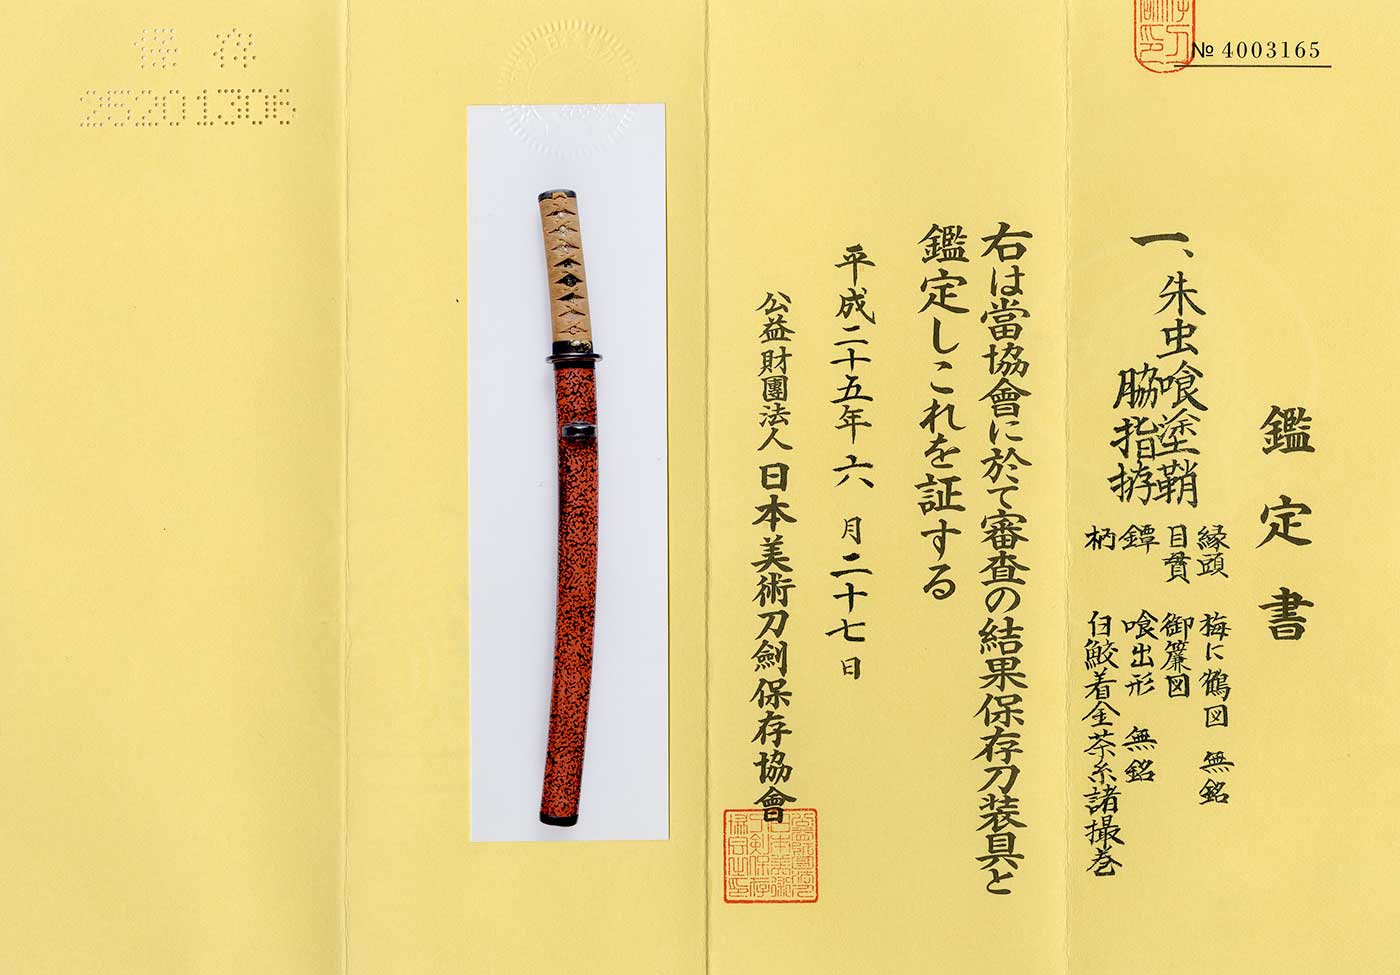 № 4003165
鑑定書
一、朱虫喰塗鞘
脇指拵
縁頭 梅に鶴図 無銘
目貫 御簾図
鐔 喰出形 無銘
柄 白鮫着金茶糸諸撮巻
右は當協會に於て審査の結果保存刀装具と
鑑定しこれを証する
平成二十五年六月二十七日
公益財團法人日本美術刀劍保存協會
保存
25201306